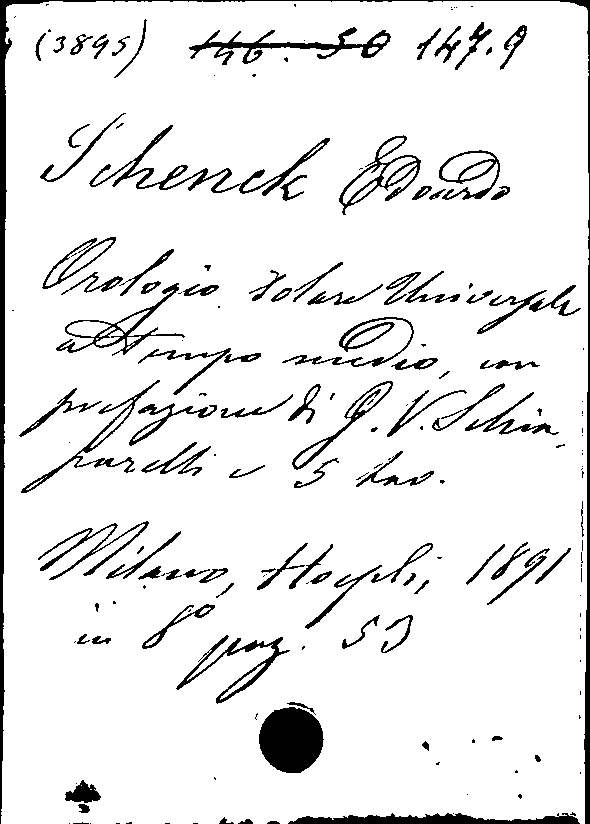 (3895) 146. 50 147.9
Schenck Edoardo
Orologio solare Universale
a tempo medio, con
prefazione di G. V. Schia,
parelli e 5 tav.
Milano, Hoepli, 1891
in 8º pag. 53